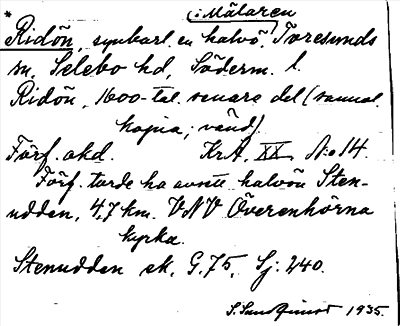 (i Mälaren
* Ridön, synbarl. en halvö, Toresunds
sn, Selebo hd, Söderm. l.
Ridön, 1600-tal. senare del (samml.
kopia; vänd).
Förf. okd. KrA, XX, N:o 14.
Förf. torde ha avsett halvön Sten-
udden, 4,7 km. VNV Överenhörna
kyrka.
Stenudden ek. G. 75, Sj: 240.
S. Sundquist 1935.